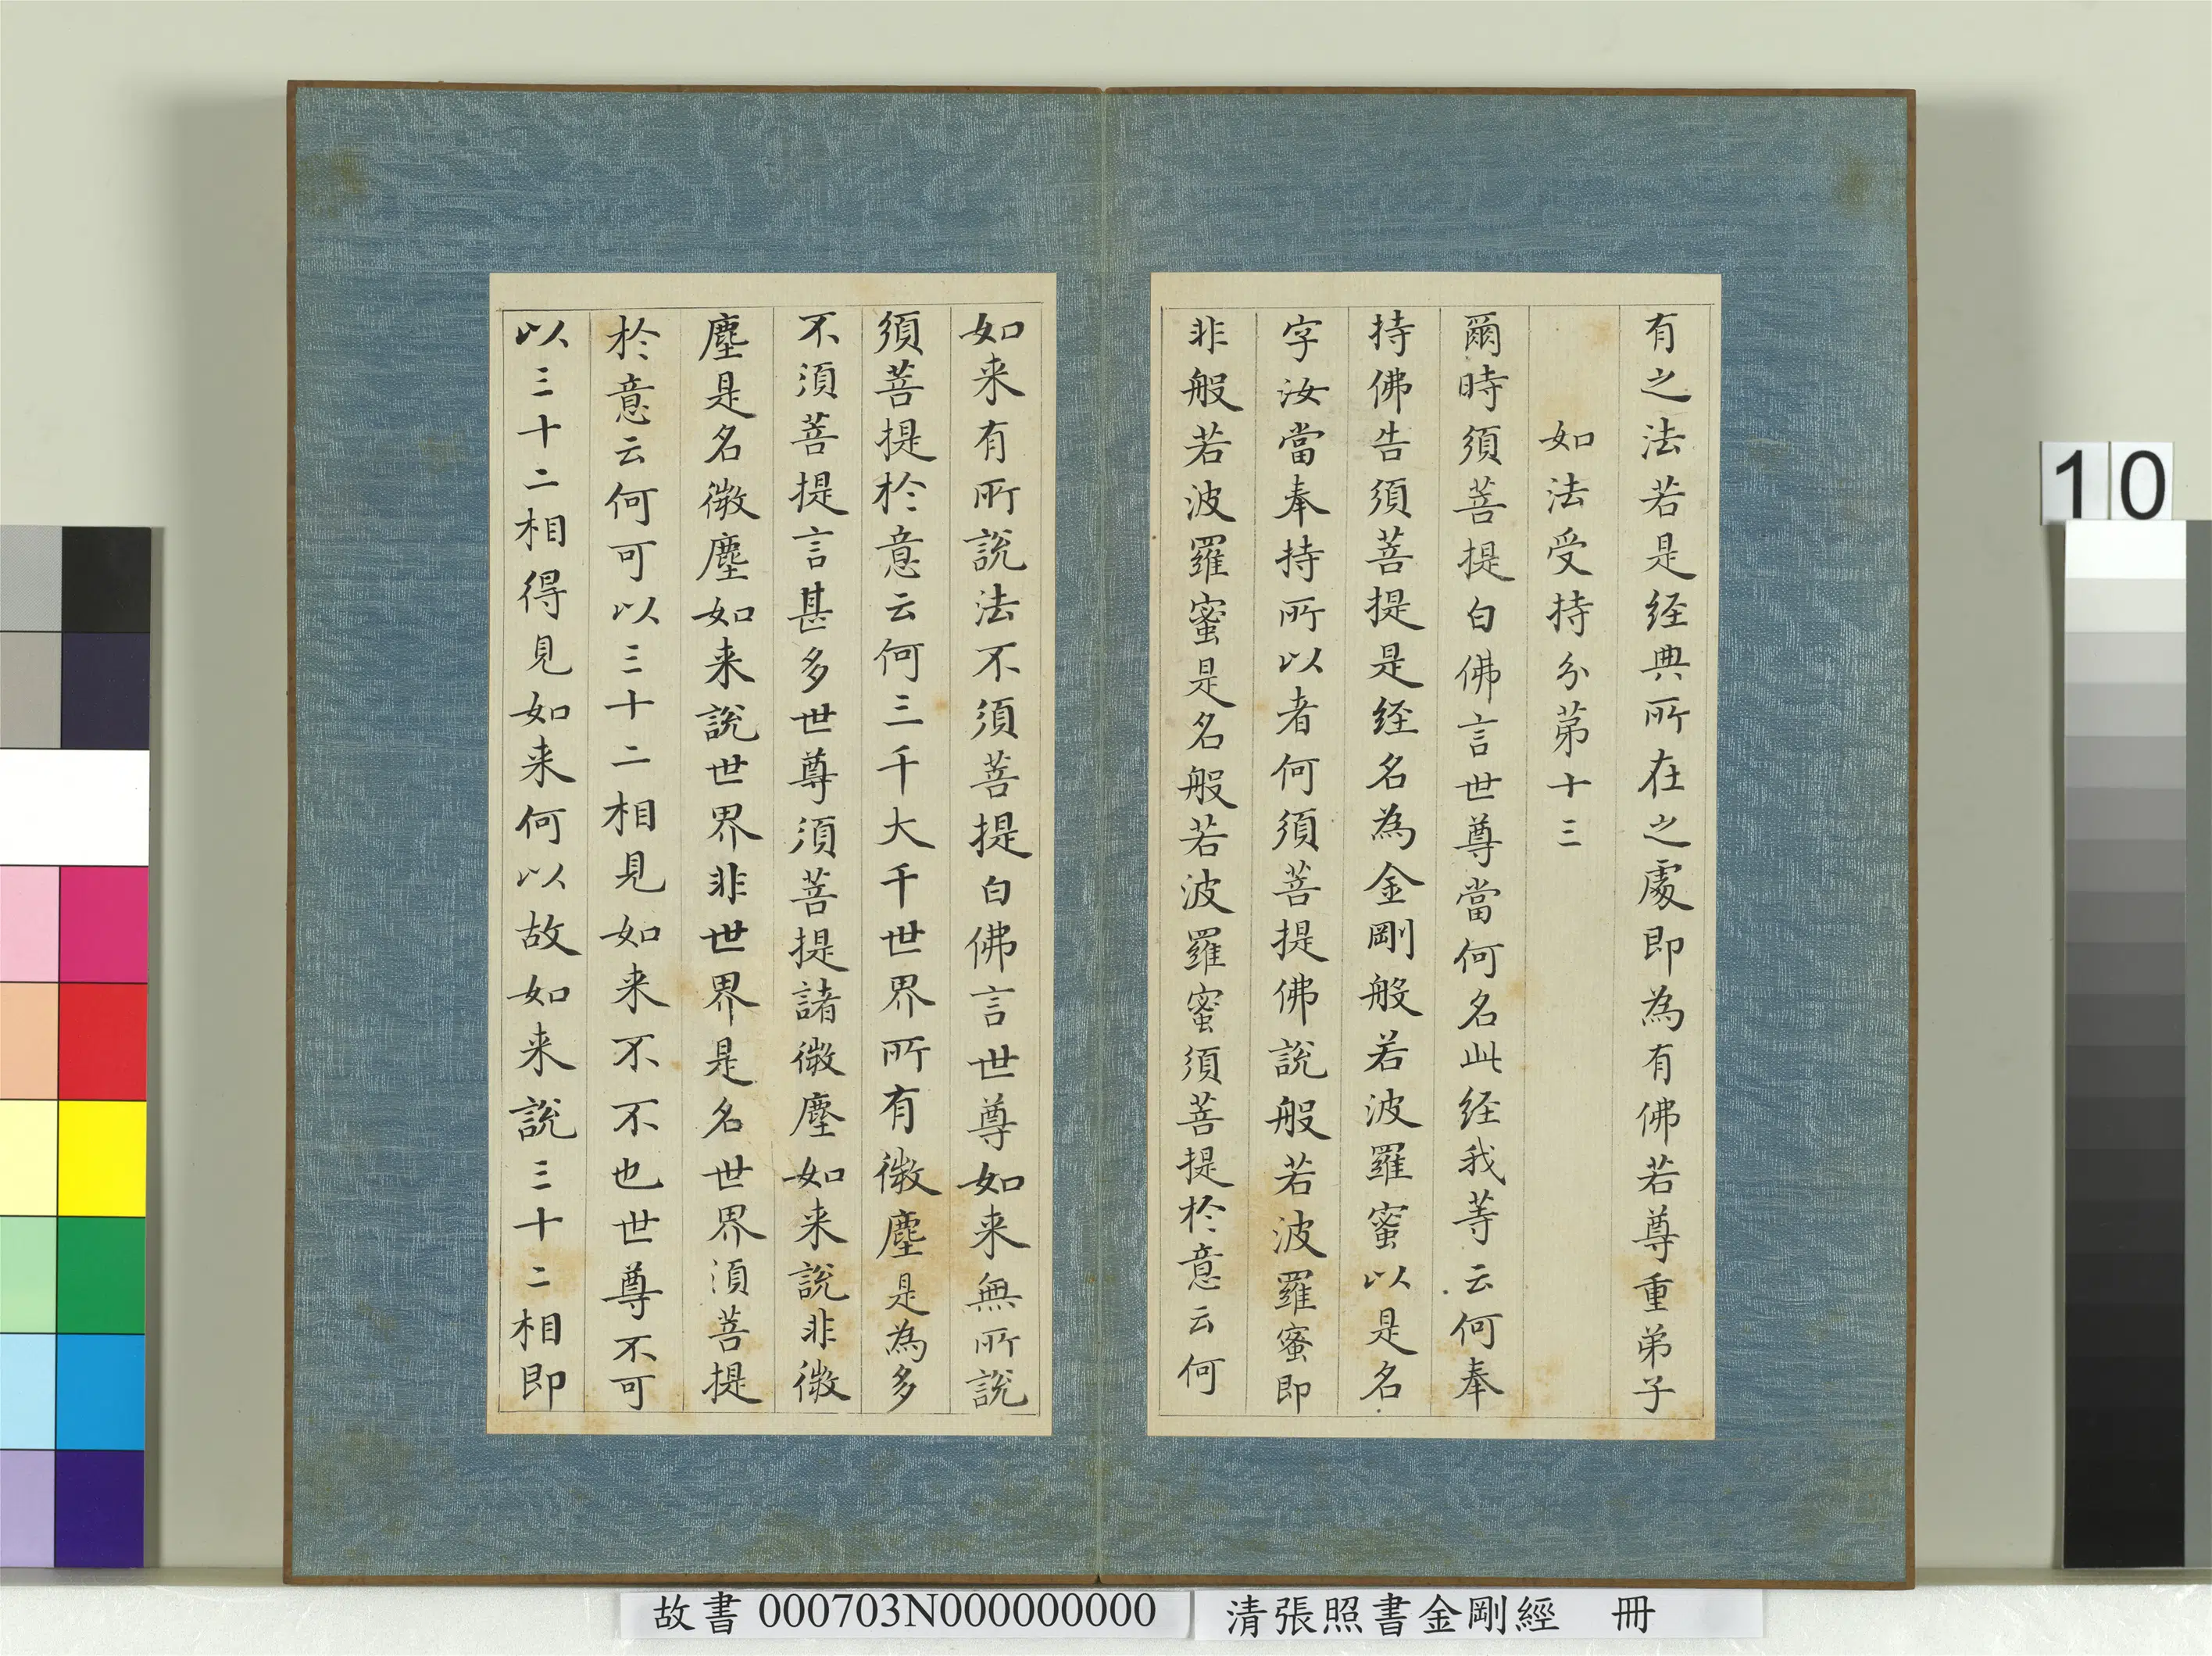 有之法若是経典所在之處即為有佛若尊重弟子
如法受持分苐十三
爾時須菩提白佛言世尊當何名此経我等云何奉
持佛告須菩提是経名為金剛般若波羅蜜以是名
字汝當奉持所以者何須菩提佛說般若波羅蜜即
非般若波羅蜜是名般若波羅蜜須菩提於意云何
如来有所說法不須菩提白佛言世尊如来無所說
須菩提於意云何三千大千世界所有微塵是為多
不須菩提言甚多世尊須菩提諸微塵如来說非微
塵是名微塵如来說世界非世界是名世界須菩提
於意云何可以三十二相見如来不不也世尊不可
以三十二相得見如来何以故如来說三十二相即
10
故書 000703N000000000
清張照書金剛經 冊